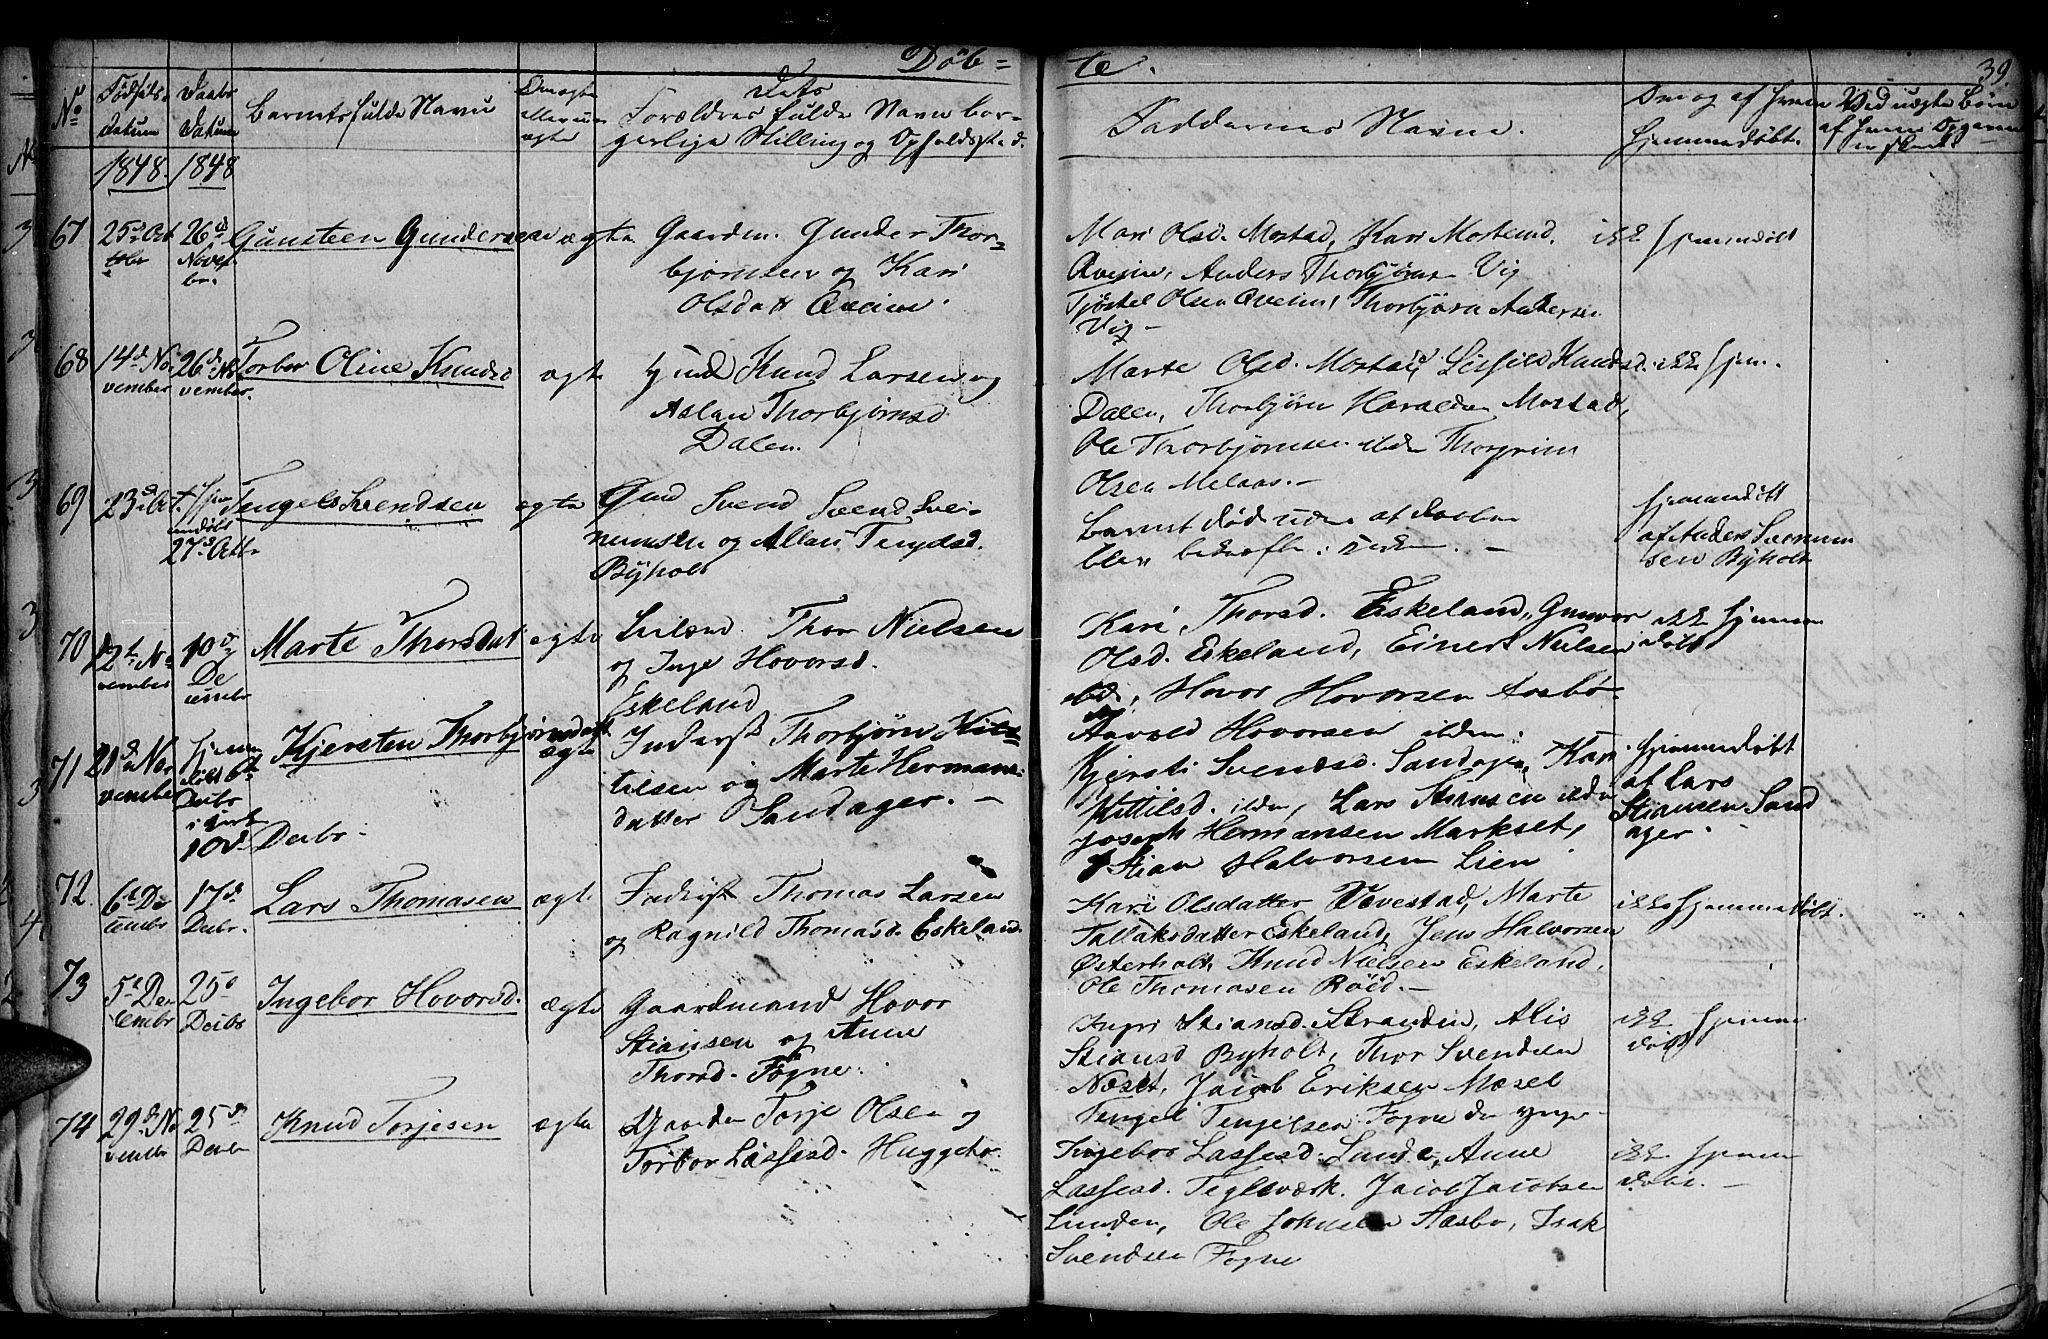 Döb= te.
39
No
Fødsels-
datum
Daabs
Datum
Barnets fulde Navn
Om ægte
eller u-
ægte
Dets
Forældres fulde Navn bor-
gerlige Stilling og Opholdssted.
Faddernes Navne.
Om og af hvem
hjemmedøbt.
Ved uægte Børn
af hvem
1848. 1848
67 25de Octbr 26d Novbr. Gunsteen Gundersen ægte
Gaardm. Gunder Thor-
bjørnsen og Kari
Olsdatt Aveim.
Mari Olsd. Mostad, Kari
Aveim, Anders Thorbjørns Vig
Tjøstel Olsen Aveim, Thorbjørn Anderse
Vig —
ikke hjemmedøbt
68 14d November 26d November. Torbor Oline Knudsd ægte
Knud Larsen og
Aslau Thorbjørnsd
Dalen.
Marte Olsd. Mostad, Knudsd.
Dalen, Thorbjørn Haraldsen Mostad,
Ole Thorbjørnsen ibdm Thorgrim
Olsen Melaas. —
ikke hjem.
69 23d Oct. hjem
medøbt
27d Octbr
Tengels Svendsen ægte
Svend Svend Svei-
numsen og Tengelsd.
Byholt
Barnet død uden at daaben
blev bekræftet i Kirken. —
hjemmedøbt
af Anders Sveinum
sen Byholt
70 12t November 10d December Marte Thorsdat ægte
Thor Nielsen
og Inge Hovorsd.
Eskeland
Kari Thorsd. Eskeland, Gunvor
Olsd. Eskeland, Einert Nielsen
ibd, Hovor Hovorsen Aasbø
Aavold Hovorsen ibdm.
ikke hjemme
døbt
71 21d November hjem
døbt 6t
Decbr
i Kirk
10d Decbr.
Kjersten Thorbjørnsdatt ægte
Inderst Thorbjørn Kit-
telsen og Marte Hermans-
datter Sandager. —
Kjersti Svendsd. Sandager, Kari
Kittilsd. ibdm, Lars Stiansen ibdm
Joseph Hermansen Markset,
Stian Halvorsen Lien
hjemmedøbt
af Lars
Stiansen Sand
ager.
72. 6t December 17d Decbr. Lars Thomasen ægte
Inderst Thomas Larsen
og Ragnild Thomasd. Eskeland.
Kari Olsdatter Vevestad, Marte
Tallaksdatter Eskeland, Jens Halvorsen
Østerholt, Knud Nielsen Eskeland,
Ole Thomasen Röed. —
ikke hjemmedøbt.
73 5t December 25d Decbr Ingebor Hovorsd. ægte
Gaardmand Hovor
Stiansen og Anne
Thorsd. Fogne.
Ingri Stiansd. Stranden, Alis
Stiansd Byholt, Thor Svendsen
Næset, Jacob Eriksen Mæsel
Tengel Tengelsen Fogne den yngre
ikke hjemme
døbt
74 29d November 25d Decbr Knud Torjesen ægte
Gaardm Torje Olsen og
Torbor Lassesd. Huggeto.
Ingebor Lassesd. Lunde, Anne
Lassesd. Teglsværk. Jacob Jacobsen
Lunden, Ole Johnsen Aasbo, Isak
Svendsen Fogne
ikke hjemme
døbt. —